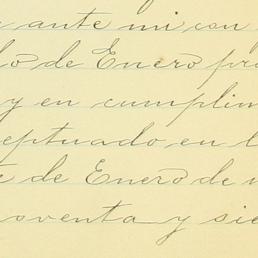 ante mi con
de Enero pro
y en cumplim
eptuado en l
de Enero de
oventa y sie